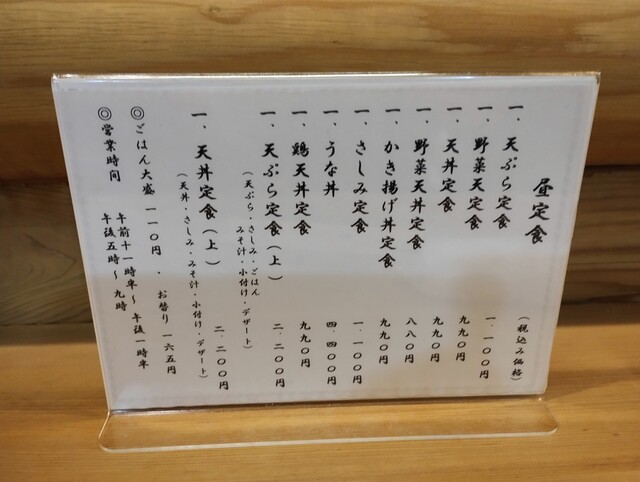 昼定食　（税込み価格）
一、天ぷら定食　一、一〇〇円
一、野菜天定食　九九〇円
一、天丼定食　九九〇円
一、野菜天丼定食　八八〇円
一、かき揚げ丼定食　九九〇円
一、さしみ定食　一、一〇〇円
一、うな丼　四、四〇〇円
一、鶏天丼定食　九九〇円
一、天ぷら定食（上）　二、二〇〇円
（天ぷら・さしみ・ごはん
みそ汁・小付け・デザート）
一、天丼定食（上）　二、二〇〇円
（天丼・さしみ・みそ汁・小付け・デザート）
◎ごはん大盛　一一〇円　・　お替り　一六五円
◎営業時間　午前十一時半～午後一時半
午後五時～九時